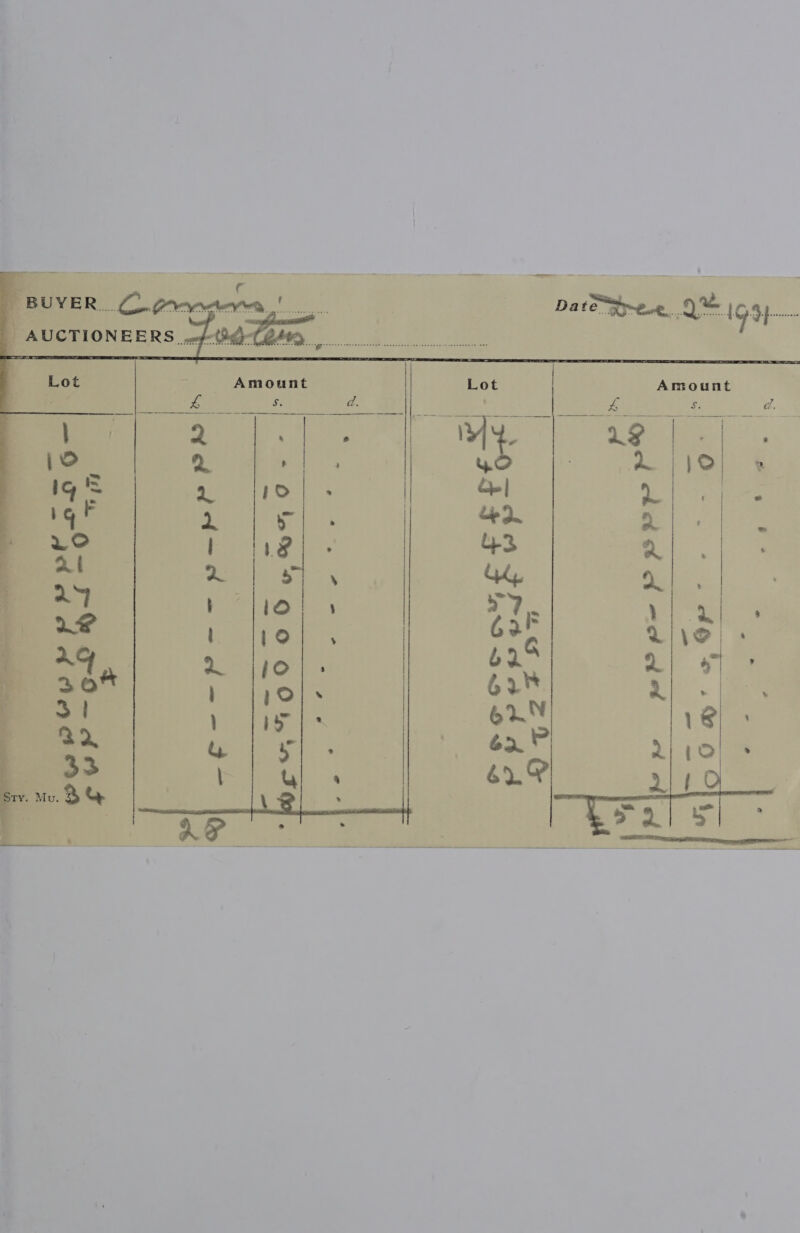 BUYER
Date Dec. 9th 1931
AUCTIONEERS
Lot Amount Lot Amount
£ s. d. £ s. d.
1 2 . . 28 . .
10 2 . . 40 2 10 .
19E 2 10 . 41 2 . .
19F 2 5 . 42 2 . .
20 1 18 . 43 2 . .
21 2 5 . 44 2 . .
27 1 10 . 57 1 2 .
28 1 10 . 62F 2 10 .
29 2 10 . 62G 2 5 .
30A 1 10 . 62H 2 . .
31 1 15 . 62N 18 .
32 4 5 . 62P 2 10 .
33 1 4 . 62Q 2 10
Sty. Mu. 34 18 .
28 . . £52 5 .